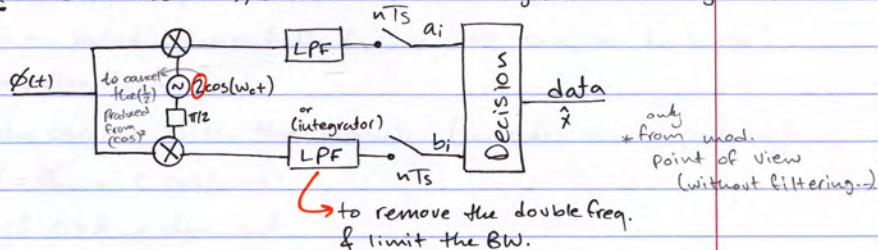 nTs
ai
LPF
ϕ(t)
to cancel
the (1/2)
Produced
from
(cos)²
2cos(ωct)
π/2
or
(integrator)
LPF
bi
nTs
Decision
data
x̂
only
* from mod.
point of view
(without filtering..)
to remove the double freq.
& limit the BW.